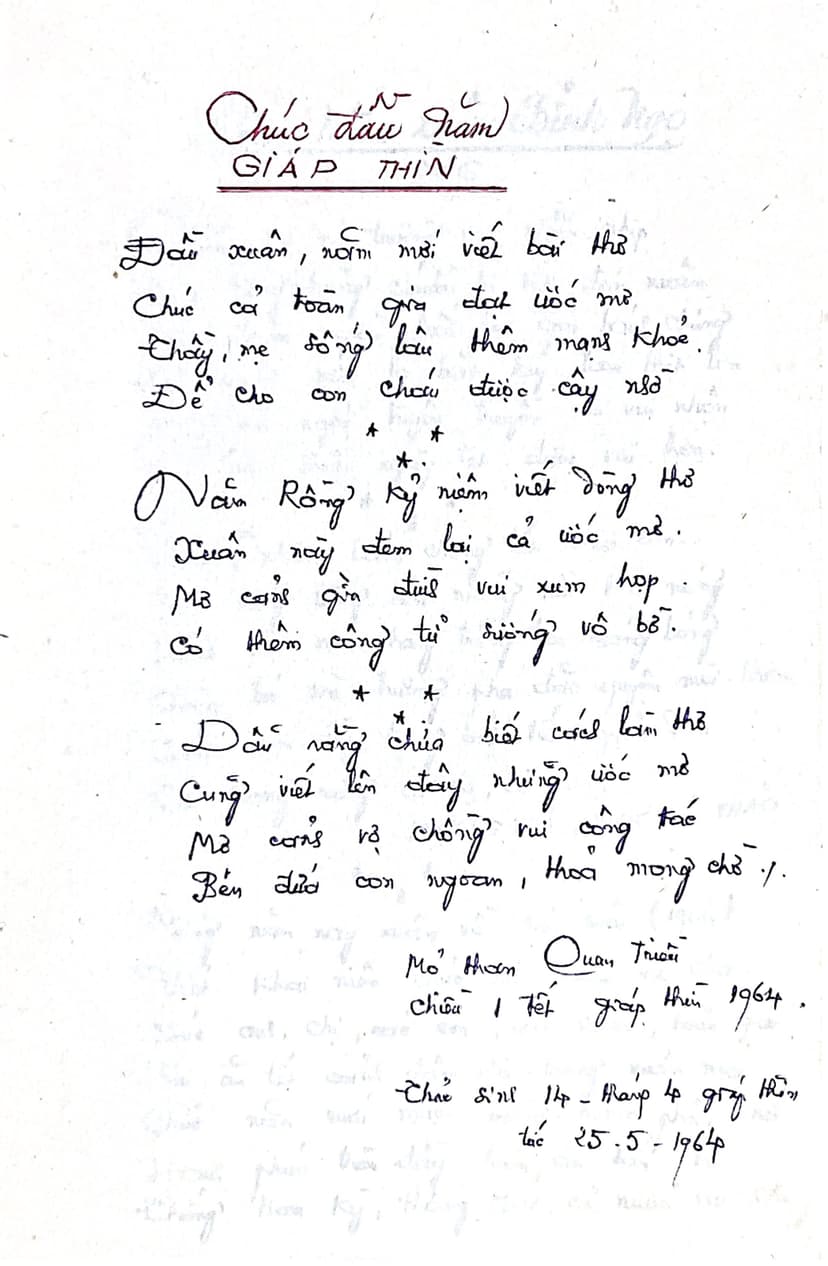 Chúc đầu năm
GIÁP THÌN
Đầu xuân, năm mới viết bài thơ
Chúc cả toàn gia đạt ước mơ
Thầy, mẹ sống lâu thêm mạnh khoẻ.
Để cho con cháu được cậy nhờ
* *
*
Năm Rồng kỷ niệm viết dòng thơ
Xuân này đem lại cả ước mơ.
Mơ cảnh gia đình vui xum họp.
Có thêm công tử sướng vô bờ.
* *
*
Dẫu rằng chửa biết cách làm thơ
Cũng viết lên đây những ước mơ
Mơ cảnh vợ chồng vui công tác
Bên đứa con ngoan, thoả mong chờ./.
Mỏ than Quan Triều
Chiều 1 Tết giáp thìn 1964.
sinh 14 - tháng 4 giáp thìn
tức 25.5-1964